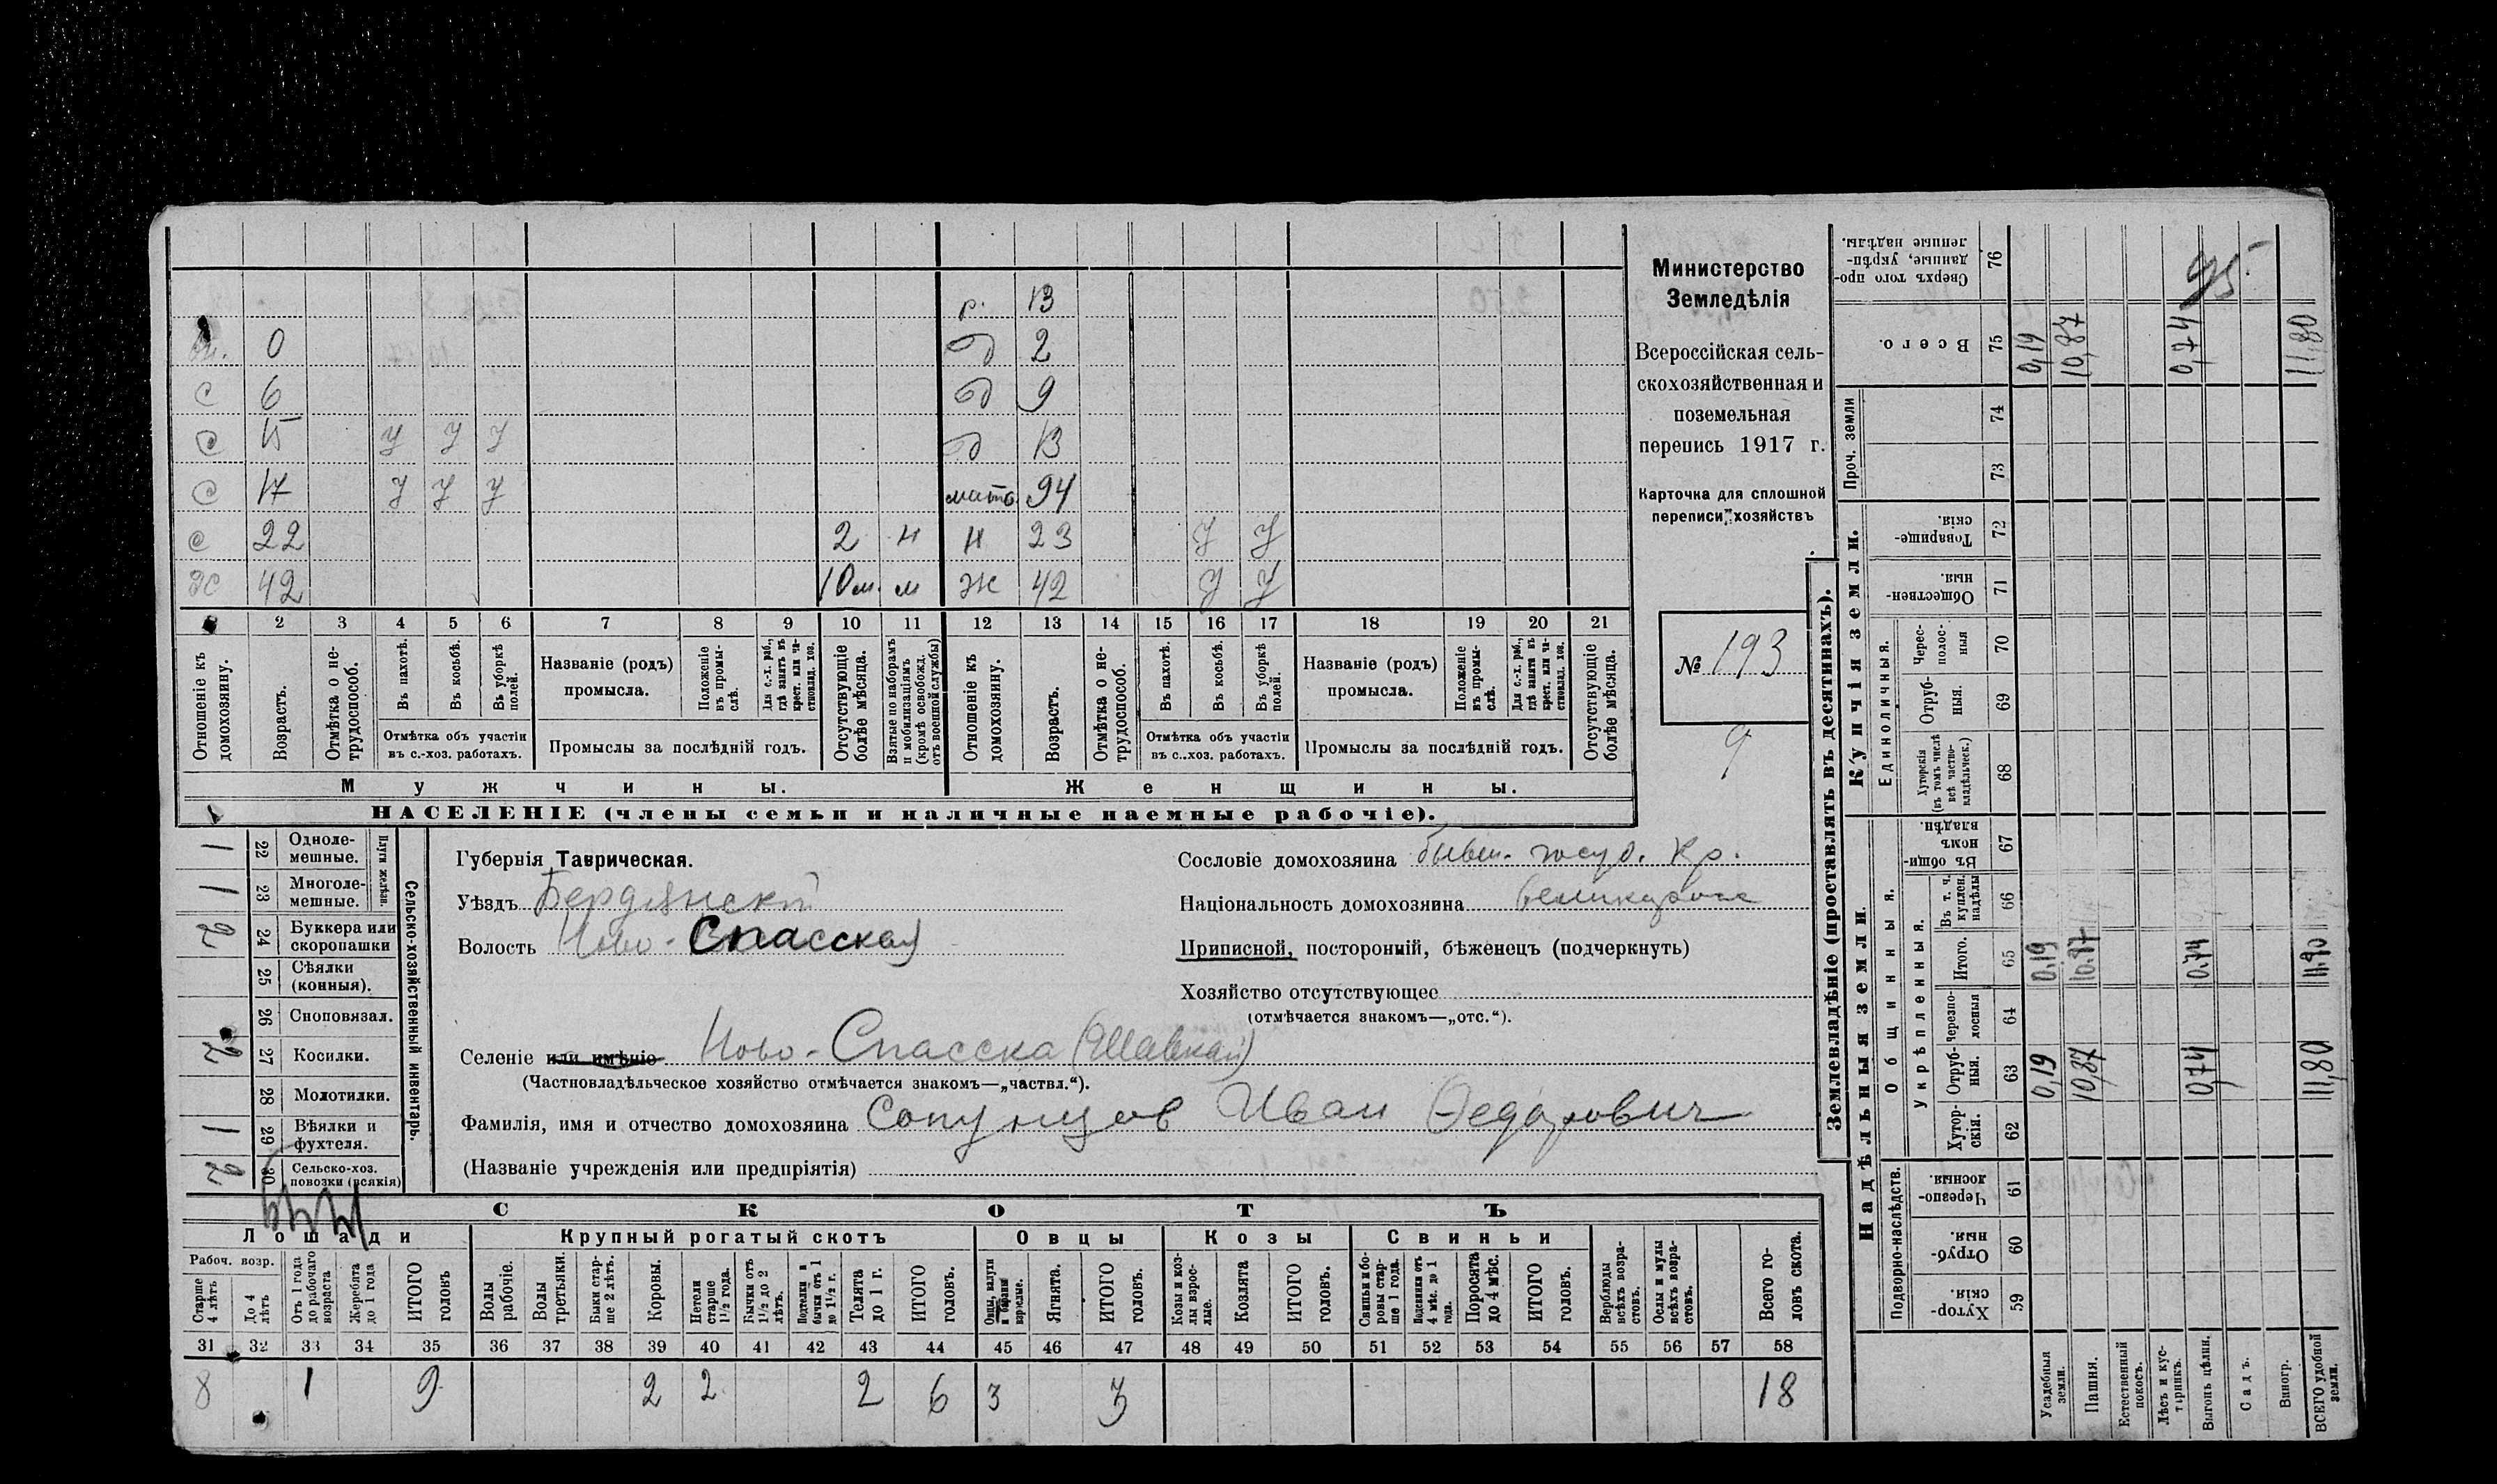 р. 13
м. 0 д 2
с 6 д 9
с 15 У У У д 13
с 17 У У У мать 94
с 22 2 н н 23 У У
ж 42 10 м. м ж 42 У У
1 2 3 4 5 6 7 8 9 10 11 12 13 14 15 16 17 18 19 20 21
Отношеніе къ домохозяину.
Возрастъ.
Отмѣтка о не-трудоспособ.
Въ пахотѣ.
Въ косьбѣ.
Въ уборкѣ полей.
Отмѣтка объ участіи
въ с.-хоз. работахъ.
Названіе (родъ)
промысла.
Положеніе въ промы-слѣ.
Для с.-х. раб., гдѣ занятъ въ крест. или ча-стновлад. хоз.
Промыслы за послѣдній годъ.
Отсутствующіе болѣе мѣсяца.
Взятые по наборамъ и мобилизаціямъ (кромѣ освобожд. отъ военной службы)
Отношеніе къ домохозяину.
Возрастъ.
Отмѣтка о не-трудоспособ.
Въ пахотѣ.
Въ косьбѣ.
Въ уборкѣ полей.
Отмѣтка объ участіи
въ с..хоз. работахъ.
Названіе (родъ)
промысла.
Положеніе въ промы-слѣ.
Для с.-х. раб., гдѣ занята въ крест. или ча-стновлад. хоз.
Промыслы за послѣдній годъ.
Отсутствующіе болѣе мѣсяца.
Мужчины. Женщины.
НАСЕЛЕНІЕ (члены семьи и наличные наемные рабочіе).
Министерство
Земледѣлія
Всероссійская сель-
скохозяйственная и
поземельная
перепись 1917 г.
Карточка для сплошной
переписи хозяйствъ
№ 193
9
Сельско-хозяйственный инвентарь.
Плуги желѣзн.
1 22 Одноле-мешные.
1 23 Многоле-мешные.
2 24 Буккера или скоропашки
25 Сѣялки (конныя).
26 Сноповязал.
2 27 Косилки.
28 Молотилки.
1 29 Вѣялки и фухтеля.
2 30 Сельско-хоз. повозки (всякія)
Губернія Таврическая.
Уѣздъ Бердянскій
Волость Ново-Спасская
Сословіе домохозяина бывш. госуд. кр.
Національность домохозяина великоросс
Приписной, посторонній, бѣженецъ (подчеркнуть)
Хозяйство отсутствующее
(отмѣчается знакомъ—„отс.“).
Селеніе или имѣніе Ново-Спасска
(Частновладѣльческое хозяйство отмѣчается знакомъ—„частвл.“).
Фамилія, имя и отчество домохозяина Сопунцов Иван Федорович
(Названіе учрежденія или предпріятія)
СКОТЪ
Лошади Крупный рогатый скотъ Овцы Козы Свиньи
Рабоч. возр.
Старше 4 лѣтъ
До 4 лѣтъ
Отъ 1 года до рабочаго возраста
Жеребята до 1 года
ИТОГО головъ
Волы рабочіе.
Волы третьяки.
Быки стар-ше 2 лѣтъ.
Коровы.
Нетели старше 1½ года.
Бычки отъ 1½ до 2 лѣтъ.
Подтелки и бычки отъ 1 до 1½ г.
Телята до 1 г.
ИТОГО головъ.
Овцы, валухи и бараны взрослые.
Ягнята.
ИТОГО головъ.
Козы и коз-лы взрос-лые.
Козлята
ИТОГО головъ.
Свиньи и бо-ровы стар-ше 1 года.
Подсвинки отъ 4 мѣс. до 1 года.
Поросята до 4 мѣс.
ИТОГО головъ.
Верблюды всѣхъ возра-стовъ.
Ослы и мулы всѣхъ возра-стовъ.
Всего го-ловъ скота.
31 32 33 34 35 36 37 38 39 40 41 42 43 44 45 46 47 48 49 50 51 52 53 54 55 56 57 58
8 1 9 2 2 2 6 3 3 18
Землевладѣніе (проставлять въ десятинахъ).
Купчія земли.
Надѣльныя земли.
Проч. земли
Единоличныя.
Общинныя.
Укрѣпленныя.
Подворно-наслѣдств.
Сверхъ того про-данные, укрѣп-ленные надѣлы. 76
Всего. 75 0,19 10,87 0,74 11,80
74
73
Товарище-скія. 72
Обществен-ныя. 71
Черес-полос-ныя 70
Отруб-ныя. 69
Хуторскія (въ томъ числѣ всѣ частно-владѣльческ.) 68
Въ общин-номъ владѣн. 67
Въ т. ч. куплен. надѣлы 66
Итого. 65 0,19 0,74
Черезпо-лосныя 64
Отруб-ныя. 63 0,19 10,87 0,74 11,80
Хутор-скія. 62
Черезпо-лосныя. 61
Отруб-ныя. 60
Хутор-скія. 59
Усадебныя земли.
Пашня.
Естественный покосъ.
Лѣсъ и кус-тарникъ.
Выгонъ цѣлин.
Садъ.
Виногр.
ВСЕГО удобной земли.